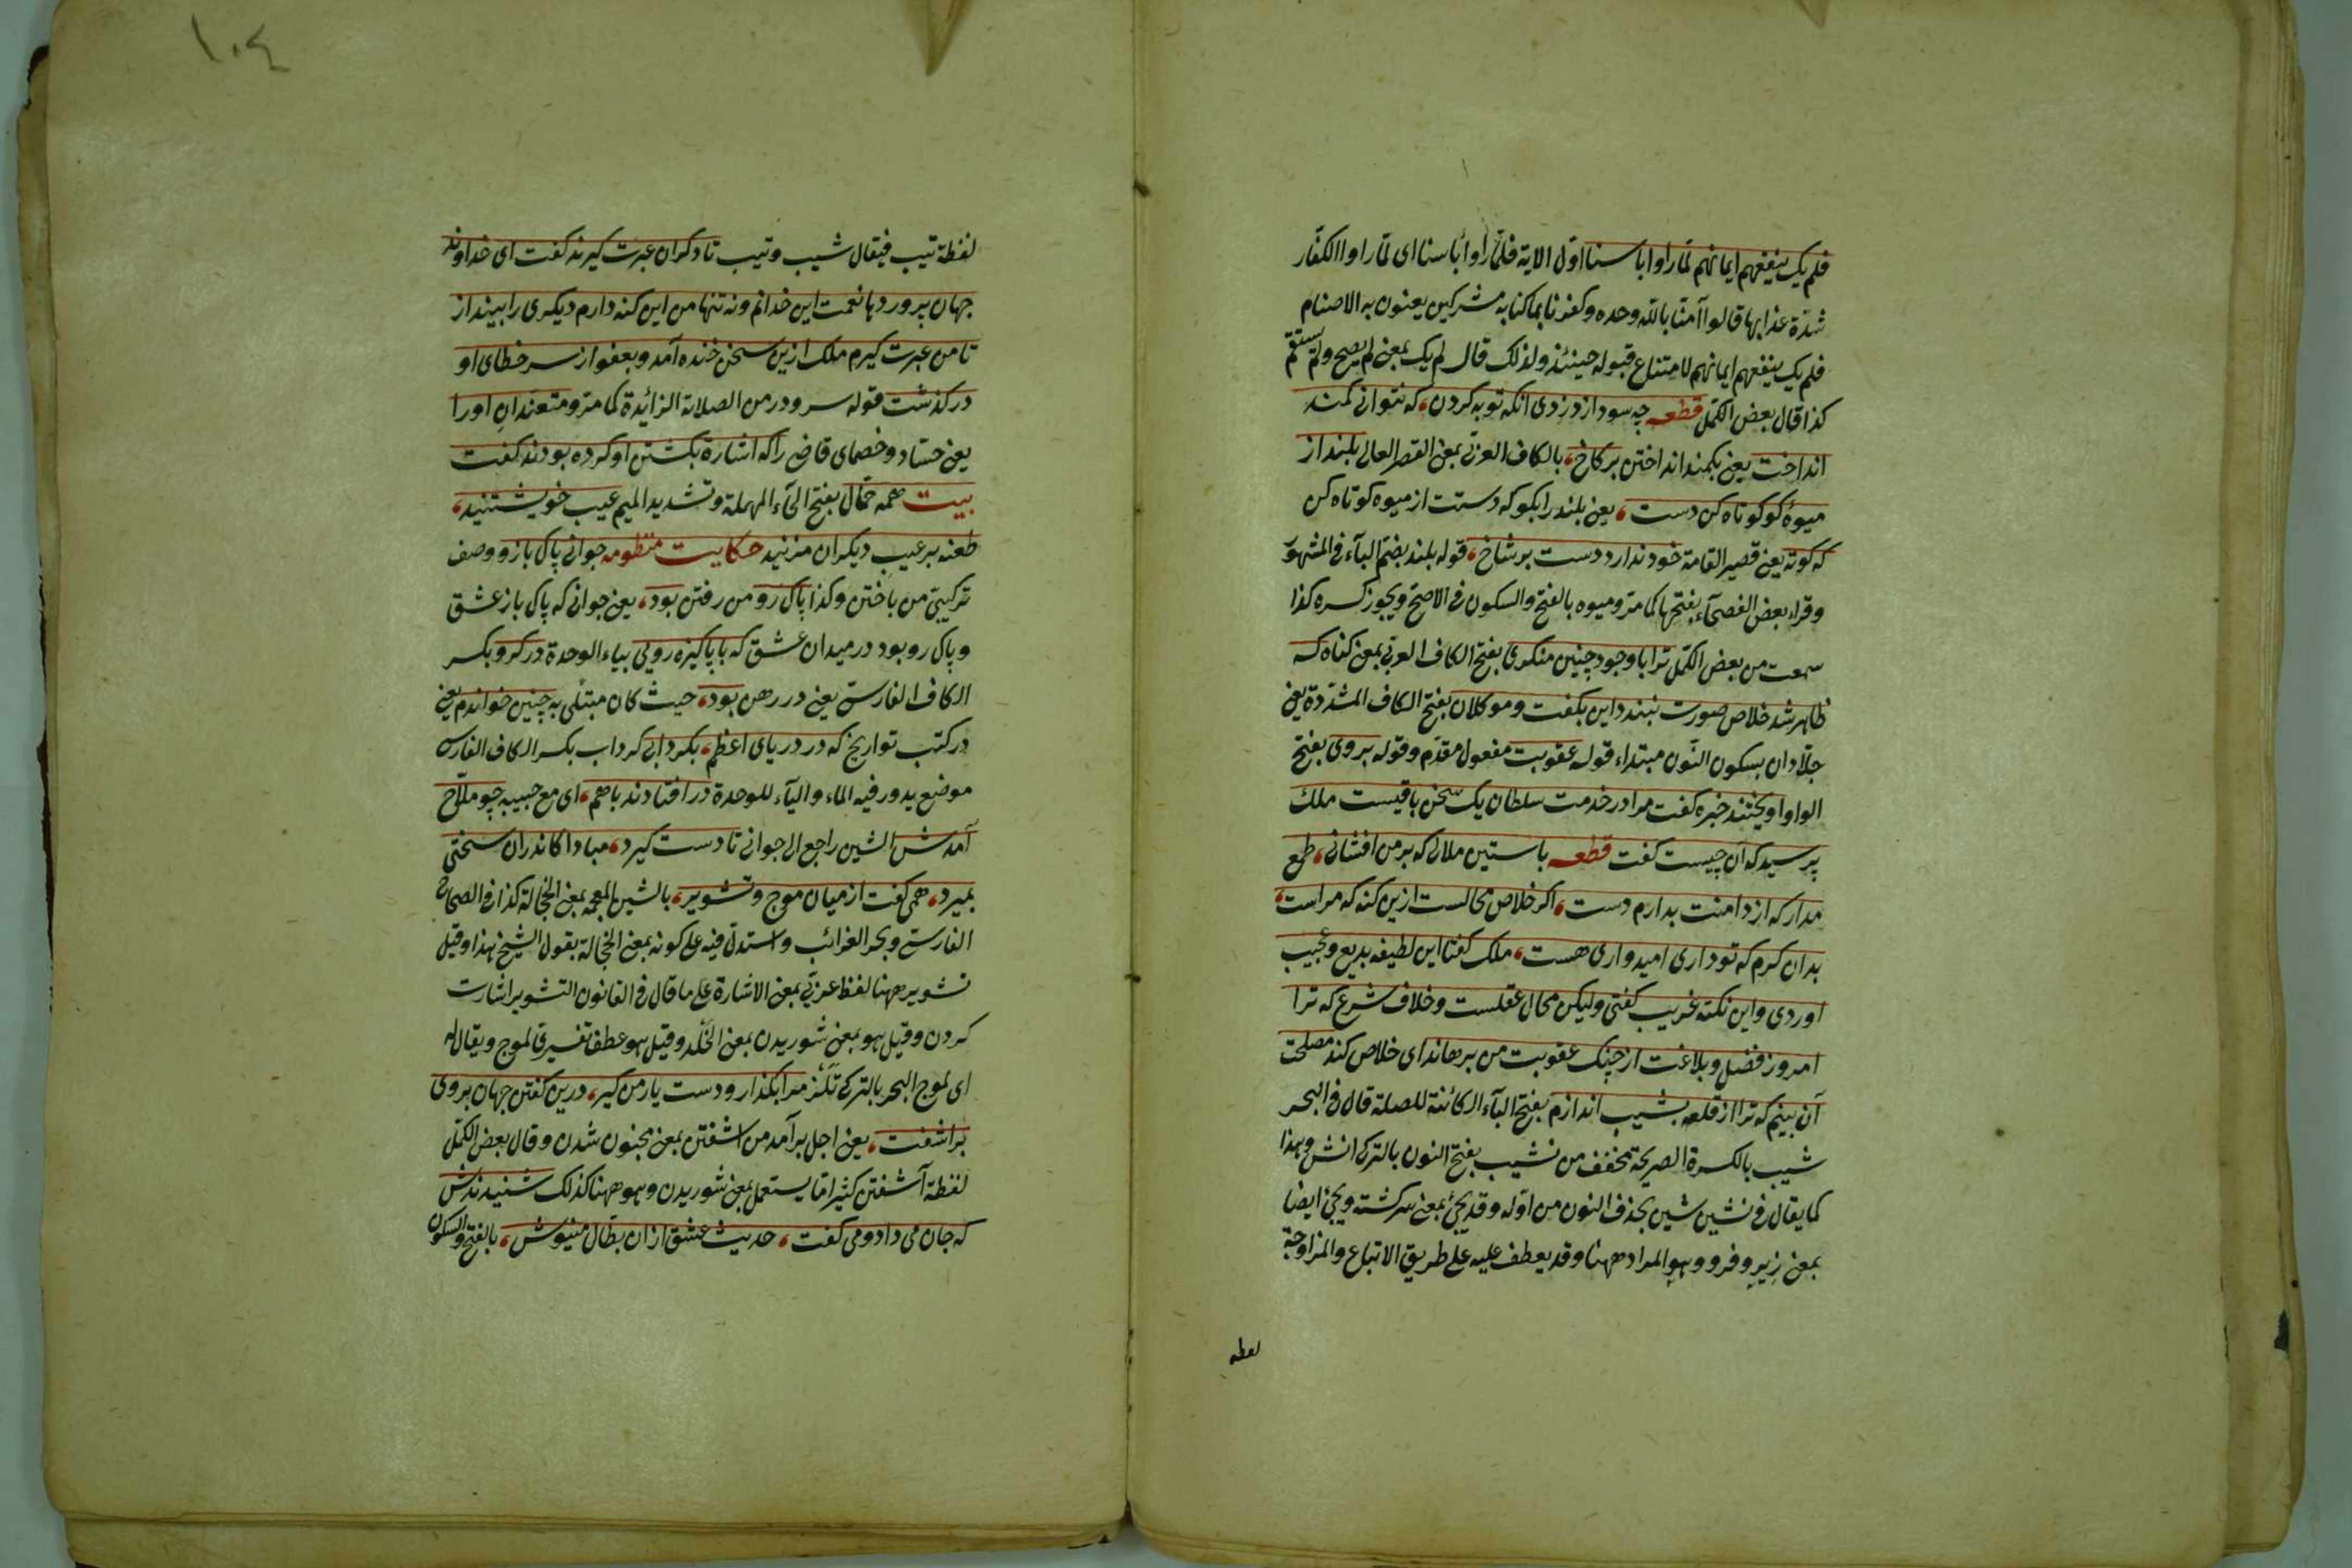 فلم يك ينفعهم ايمانهم لمّا راوا باسنا اوّل الاية فلمّا راوا باسنا اى لمّا راوا الكفّار
شدّة عذابها قالوا آمنّا باللّه وحده وكفرنا بما كنّا به مشركين يعنون به الاصنام
فلم يك ينفعهم ايمانهم لامتناع قبوله حينئذ ولذلك قال لم يك بمعنى لم يصح ولم يستقم
كذا قال بعض الكمّل قطعه چه سود از دزدى انكه توبه كردن، كه نتوانى كمند
انداخت يعنى بكمند انداختن بر كاخ، بالكاف العربى بمعنى القصر العالى بلند از
ميوهٔ كو كوتاه كن دست، يعنى بلند را بكو كه دستت از ميوه كوتاه كن
كه كوته يعنى قصير القامة خود ندارد دست بر شاخ، قوله بلند بضم الباء فى المشهور
وقراء بعض الفصحآء بفتحها كما مرّ وميوه بالفتح والسكون فى الاصح ويجوز كسره كذا
سمعت من بعض الكمّل ترا با وجود چنين منكرى بفتح الكاف العربى بمعنى كناه كه
ظاهر شد خلاص صورت نبندد اين بكفت وموكلان بفتح الكاف المشدّدة يعنى
جلّادان بسكون النّون مبتداء قوله عقوبت مفعول مقدّم وقوله بروى بفتح
الواو اويختند خبره كفت مرا در خدمت سلطان يك سخن باقيست ملك
پرسيد كه آن چيست كفت قطعه باستين ملالى كه بر من افشانى، طمع
مدار كه از دامنت بدارم دست، اكر خلاص محالست ازين كنه كه مراست،
بدان كرم كه تو دارى اميدوارى هست، ملك كفتا اين لطيفه بديع وعجيب
اوردى واين نكته غريب كفتى وليكن محال عقلست وخلاف شرع كه ترا
امروز فضل وبلاغت از چنك عقوبت من برهاند اى خلاص كند مصلحت
آن بينم كه ترا از قلعه بشيب اندازم بفتح البآء الكائنة للصلة قال فى البحر
شيب بالكسرة الصريحة مخفف من نشيب بفتح النون بالتركى انش وهذا
كما يقال فى نشين شين بحذف النون من اوّله وقد يجئ بمعنى سركشته ويجئ ايضا
بمعنى زير وفرو وهو المراد ههنا وقد يعطف عليه على طريق الاتباع والمزاوجة
لفظه
١٠٤
لفظة تيب فيقال شيب وتيب تا دكران عبرت كيرند كفت اى خداوند
جهان پرورد ها نعمت اين خدانم ونه تنها من اين كنه دارم ديكرى را بينداز
تا من عبرت كيرم ملك ازين سخن خنده آمد وبعفو از سر خطاى او
دركذشت قوله سر و در من الصلات الزائدة كما مرّ ومتعندان اورا
يعنى حسّاد وخصماى قاضى را كه اشارة بكشتن او كرده بودند كفت
بيت همه حمّال بفتح الحآء المهملة وتشديد الميم عيب خويشتنيد،
طعنه بر عيب ديكران مزنيد حكايت منظومه جوانى پاك باز ووصف
تركيبى من باختن وكذا پاك رو من رفتن بود، يعنى جوانى كه پاك باز عشق
وپاك رو بود در ميدان عشق كه با پاكيزه رويى بياء الوحدة در كرو بكسر
الكاف الفارسى يعنى در رهن بود، حيث كان مبتلى به چنين خواندم يعنى
در كتب تواريخ كه در درياى اعظم، بكردابى كرداب بكسر الكاف الفارسى
موضع يدور فيه الماء واليآء للوحدة در افتادند باهم، اى مع حبيبه چو ملّاح
آمدش الشين راجع الى جوانى تا دست كيرد، مبادا كاندران سختى
بميرد، همى كفت از ميان موج وتشوير، بالشين المعجمه بمعنى الخجالة كذا فى الصحاح
الفارسى وبحر الغرائب واستدلّ فيه على كونه بمعنى الخجالة بقول الشيخ هذا وقيل
تشوير ههنا لفظ عربى بمعنى الاشارة على ما قال فى القانون التشوير اشارت
كردن وقيل هو بمعنى شوريدن بمعنى وقيل هو عطف تفسيرى لموج ويقال له
اى لموج البحر بالتركى تكز مرا بكذار ودست يار من كير، درين كفتن جهان بروى
براشفت، يعنى اجل برآمد من اشفتن بمعنى مجنون شدن وقال بعض الكمّل
لفظة آشفتن كثيرا ما يستعمل بمعنى شوريدن وهو ههنا كذلك شنيدندش
كه جان مى داد ومى كفت، حديث عشق ازان بطّال منيوش، بالفتح والسكون